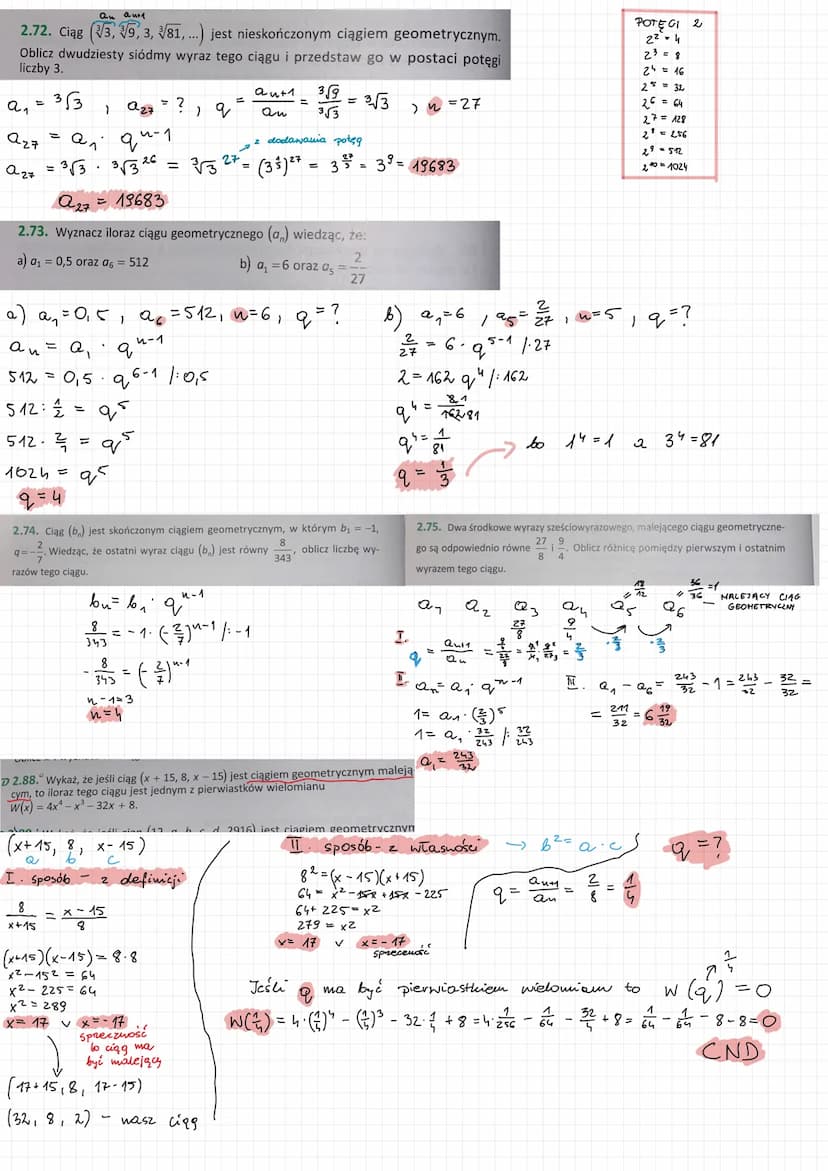 aₙ aₙ₊₁
2.72. Ciąg (∛3, ∛9, 3, ∛81, ...) jest nieskończonym ciągiem geometrycznym.
Oblicz dwudziesty siódmy wyraz tego ciągu i przedstaw go w postaci potęgi
liczby 3.
a₁ = ∛3 , a₂₇ = ? , q = aₙ₊₁/aₙ = ∛9/∛3 = ∛3 , n = 27
a₂₇ = a₁ · qⁿ⁻¹
z dodawania potęg
a₂₇ = ∛3 · ∛3²⁶ = ∛3²⁷ = (3^⅓)²⁷ = 3^(27/3) = 3⁹ = 19683
a₂₇ = 19683
POTĘGI 2
2² = 4
2³ = 8
2⁴ = 16
2⁵ = 32
2⁶ = 64
2⁷ = 128
2⁸ = 256
2⁹ = 512
2¹⁰ = 1024
2.73. Wyznacz iloraz ciągu geometrycznego (aₙ) wiedząc, że:
a) a₁ = 0,5 oraz a₆ = 512 b) a₁ = 6 oraz a₅ = 2/27
a) a₁ = 0,5 , a₆ = 512, n = 6, q = ?
aₙ = a₁ · qⁿ⁻¹
512 = 0,5 · q⁶⁻¹ /: 0,5
512 : 1/2 = q⁵
512 · 2/1 = q⁵
1024 = q⁵
q = 4
b) a₁ = 6 , a₅ = 2/27 , n = 5 , q = ?
2/27 = 6 · q⁵⁻¹ /· 27
2 = 162 q⁴ /: 162
q⁴ = 2 1/162 81
q⁴ = 1/81 bo 1⁴ = 1 a 3⁴ = 81
q = 1/3
2.74. Ciąg (bₙ) jest skończonym ciągiem geometrycznym, w którym b₁ = −1,
q = −2/7. Wiedząc, że ostatni wyraz ciągu (bₙ) jest równy 8/343, oblicz liczbę wy-
razów tego ciągu.
bₙ = b₁ · qⁿ⁻¹
8/343 = −1 · (−2/7)ⁿ⁻¹ /: −1
−8/343 = (−2/7)ⁿ⁻¹
n−1 = 3
n = 4
2.75. Dwa środkowe wyrazy sześciowyrazowego, malejącego ciągu geometryczne-
go są odpowiednio równe 27/8 i 9/4. Oblicz różnicę pomiędzy pierwszym i ostatnim
wyrazem tego ciągu.
18/12 36/36 = 1
a₁ a₂ a₃ a₄ a₅ a₆ — MALEJĄCY CIĄG
GEOMETRYCZNY
27/8 9/4 · 2/3 · 2/3
I. q = aₙ₊₁/aₙ = 9/4 / 27/8 = 9¹/4₁ · 8²/27₃ = 2/3
II. aₙ = a₁ · qⁿ⁻¹
1 = a₁ · (2/3)⁵
1 = a₁ · 32/243 /: 32/243
a₁ = 243/32
III. a₁ − a₆ = 243/32 − 1 = 243/32 − 32/32 =
= 211/32 = 6 19/32
D 2.88. Wykaż, że jeśli ciąg (x + 15, 8, x − 15) jest ciągiem geometrycznym maleją
cym, to iloraz tego ciągu jest jednym z pierwiastków wielomianu
W(x) = 4x⁴ − x³ − 32x + 8.
(x+15, 8, x−15)
a b c
I. sposób – z definicji
8/x+15 = x−15/8
(x+15)(x−15) = 8·8
x² − 15² = 64
x² − 225 = 64
x² = 289
x = 17 v x = −17
sprzeczność
bo ciąg ma
być malejący
(17+15, 8, 17−15)
(32, 8, 2) – nasz ciąg
II. sposób – z własności → b² = a·c
8² = (x−15)(x+15)
64 = x² − 15x + 15x − 225
64 + 225 = x²
279 = x²
x = 17 v x = −17
sprzeczność
q = ?
q = aₙ₊₁/aₙ = 2/8 = 1/4
1/4
Jeśli q ma być pierwiastkiem wielomianu to W(q) = 0
W(1/4) = 4·(1/4)⁴ − (1/4)³ − 32·1/4 + 8 = 4·1/256 − 1/64 − 32/4 + 8 = 1/64 − 1/64 − 8 − 8 = 0
CND